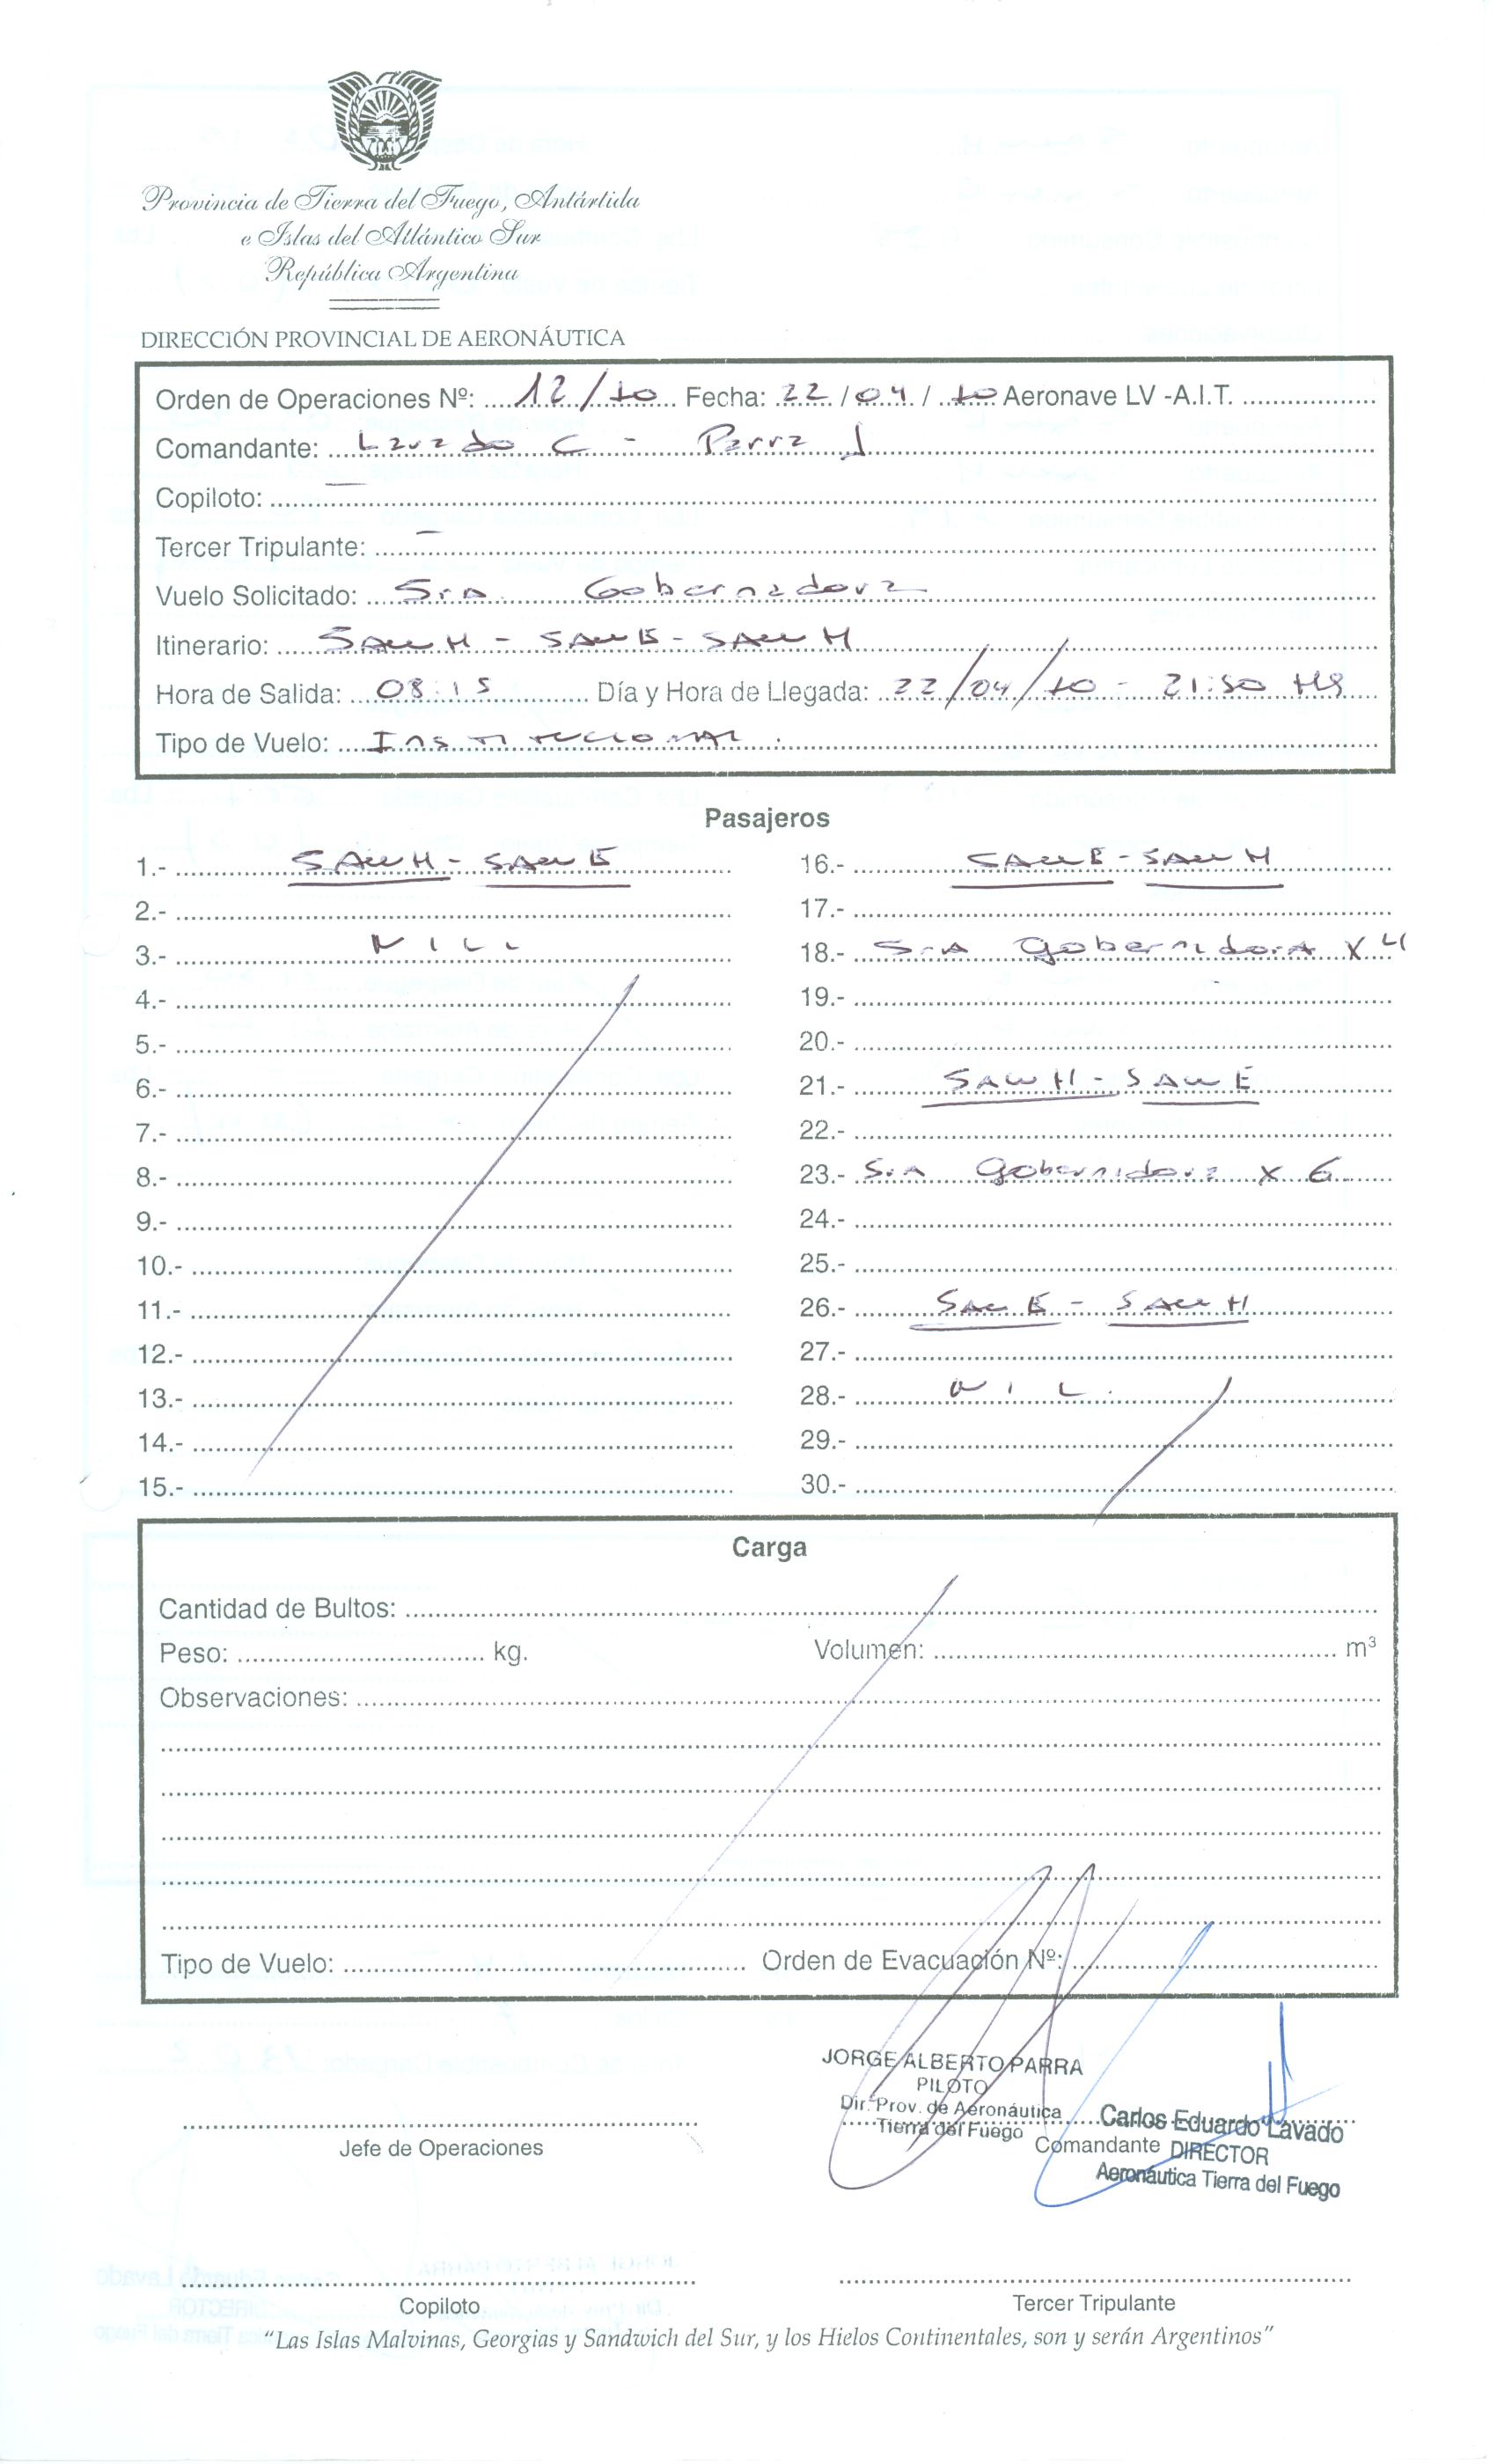 Provincia de Tierra del Fuego, Antártida
e Islas del Atlántico Sur
República Argentina
DIRECCIÓN PROVINCIAL DE AERONÁUTICA
Orden de Operaciones Nº: 12/10 Fecha: 22/04/10 Aeronave LV -A.I.T.
Comandante: Lavado C - Parra J
Copiloto: —
Tercer Tripulante: —
Vuelo Solicitado: Sra Gobernadora
Itinerario: SAWH - SAWE - SAWH
Hora de Salida: 08:15 Día y Hora de Llegada: 22/04/10 - 21:50 HS
Tipo de Vuelo: Institucional.
Pasajeros
1.- SAWH - SAWE
2.-
3.- NIL
4.-
5.-
6.-
7.-
8.-
9.-
10.-
11.-
12.-
13.-
14.-
15.-
16.- SAWE - SAWH
17.-
18.- Sra Gobernadora x 4
19.-
20.-
21.- SAWH - SAWE
22.-
23.- Sra Gobernadora x 6
24.-
25.-
26.- SAWE - SAWH
27.-
28.- NIL.
29.-
30.-
Carga
Cantidad de Bultos:
Peso: kg. Volumen: m³
Observaciones:
Tipo de Vuelo: Orden de Evacuación Nº:
JORGE ALBERTO PARRA
PILOTO
Dir. Prov. de Aeronáutica
Tierra del Fuego
Carlos Eduardo Lavado
DIRECTOR
Aeronáutica Tierra del Fuego
Jefe de Operaciones
Comandante
Copiloto
Tercer Tripulante
"Las Islas Malvinas, Georgias y Sandwich del Sur, y los Hielos Continentales, son y serán Argentinos"